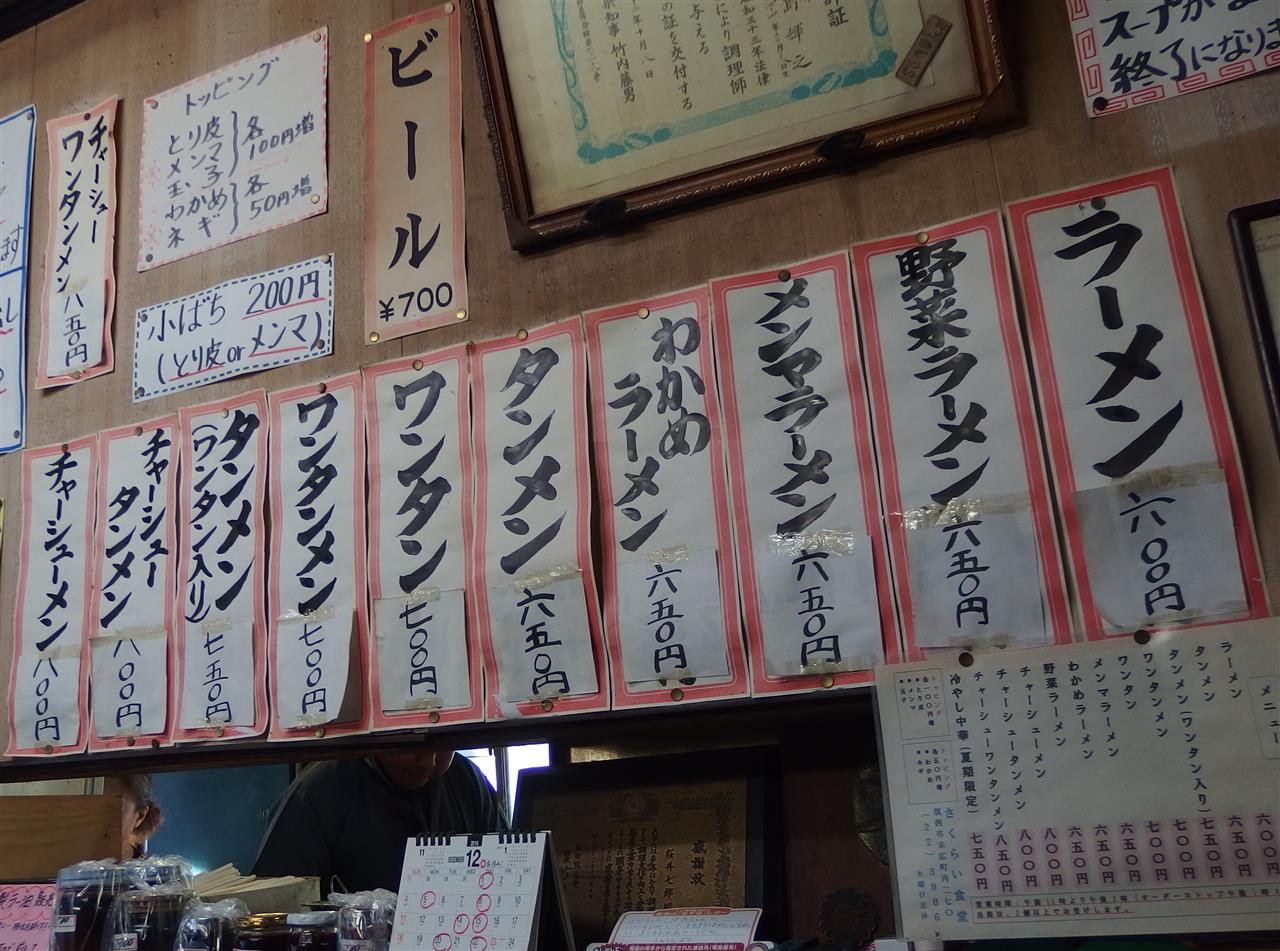 スープがな
終了になりま
ビール
¥700
トッピング
とり皮
メンマ
玉子
各
100円増
わかめ
ネギ
各
50円増
小ばち 200円
(とり皮orメンマ)
チャーシュー
ワンタンメン 八五〇円
ラーメン 六〇〇円
野菜ラーメン 六五〇円
メンマラーメン 六五〇円
わかめ
ラーメン 六五〇円
タンメン 六五〇円
ワンタン 七〇〇円
ワンタンメン 七〇〇円
タンメン
(ワンタン入り) 七五〇円
チャーシュー
タンメン 八〇〇円
チャーシューメン 八〇〇円
和三十三年法律
により調理師
与える
の証を交付する
年十月八日
県知事 竹内藤男
メニュー
ラーメン 六〇〇円
タンメン 六五〇円
タンメン(ワンタン入り) 七五〇円
ワンタンメン 七〇〇円
ワンタン 七〇〇円
メンマラーメン 六五〇円
わかめラーメン 六五〇円
野菜ラーメン 六五〇円
チャーシューメン 八〇〇円
チャーシュータンメン 八〇〇円
チャーシューワンタンメン 八五〇円
冷やし中華(夏期限定) 七五〇円
トッピング
各一〇〇円増
とり皮
メンマ
玉子
トッピング
各五〇円増
わかめ
ネギ
さくらい食堂
筑西市末広町丙二七〇
(22)3886
水曜日定休
感謝状
11
DECEMBER
12
1